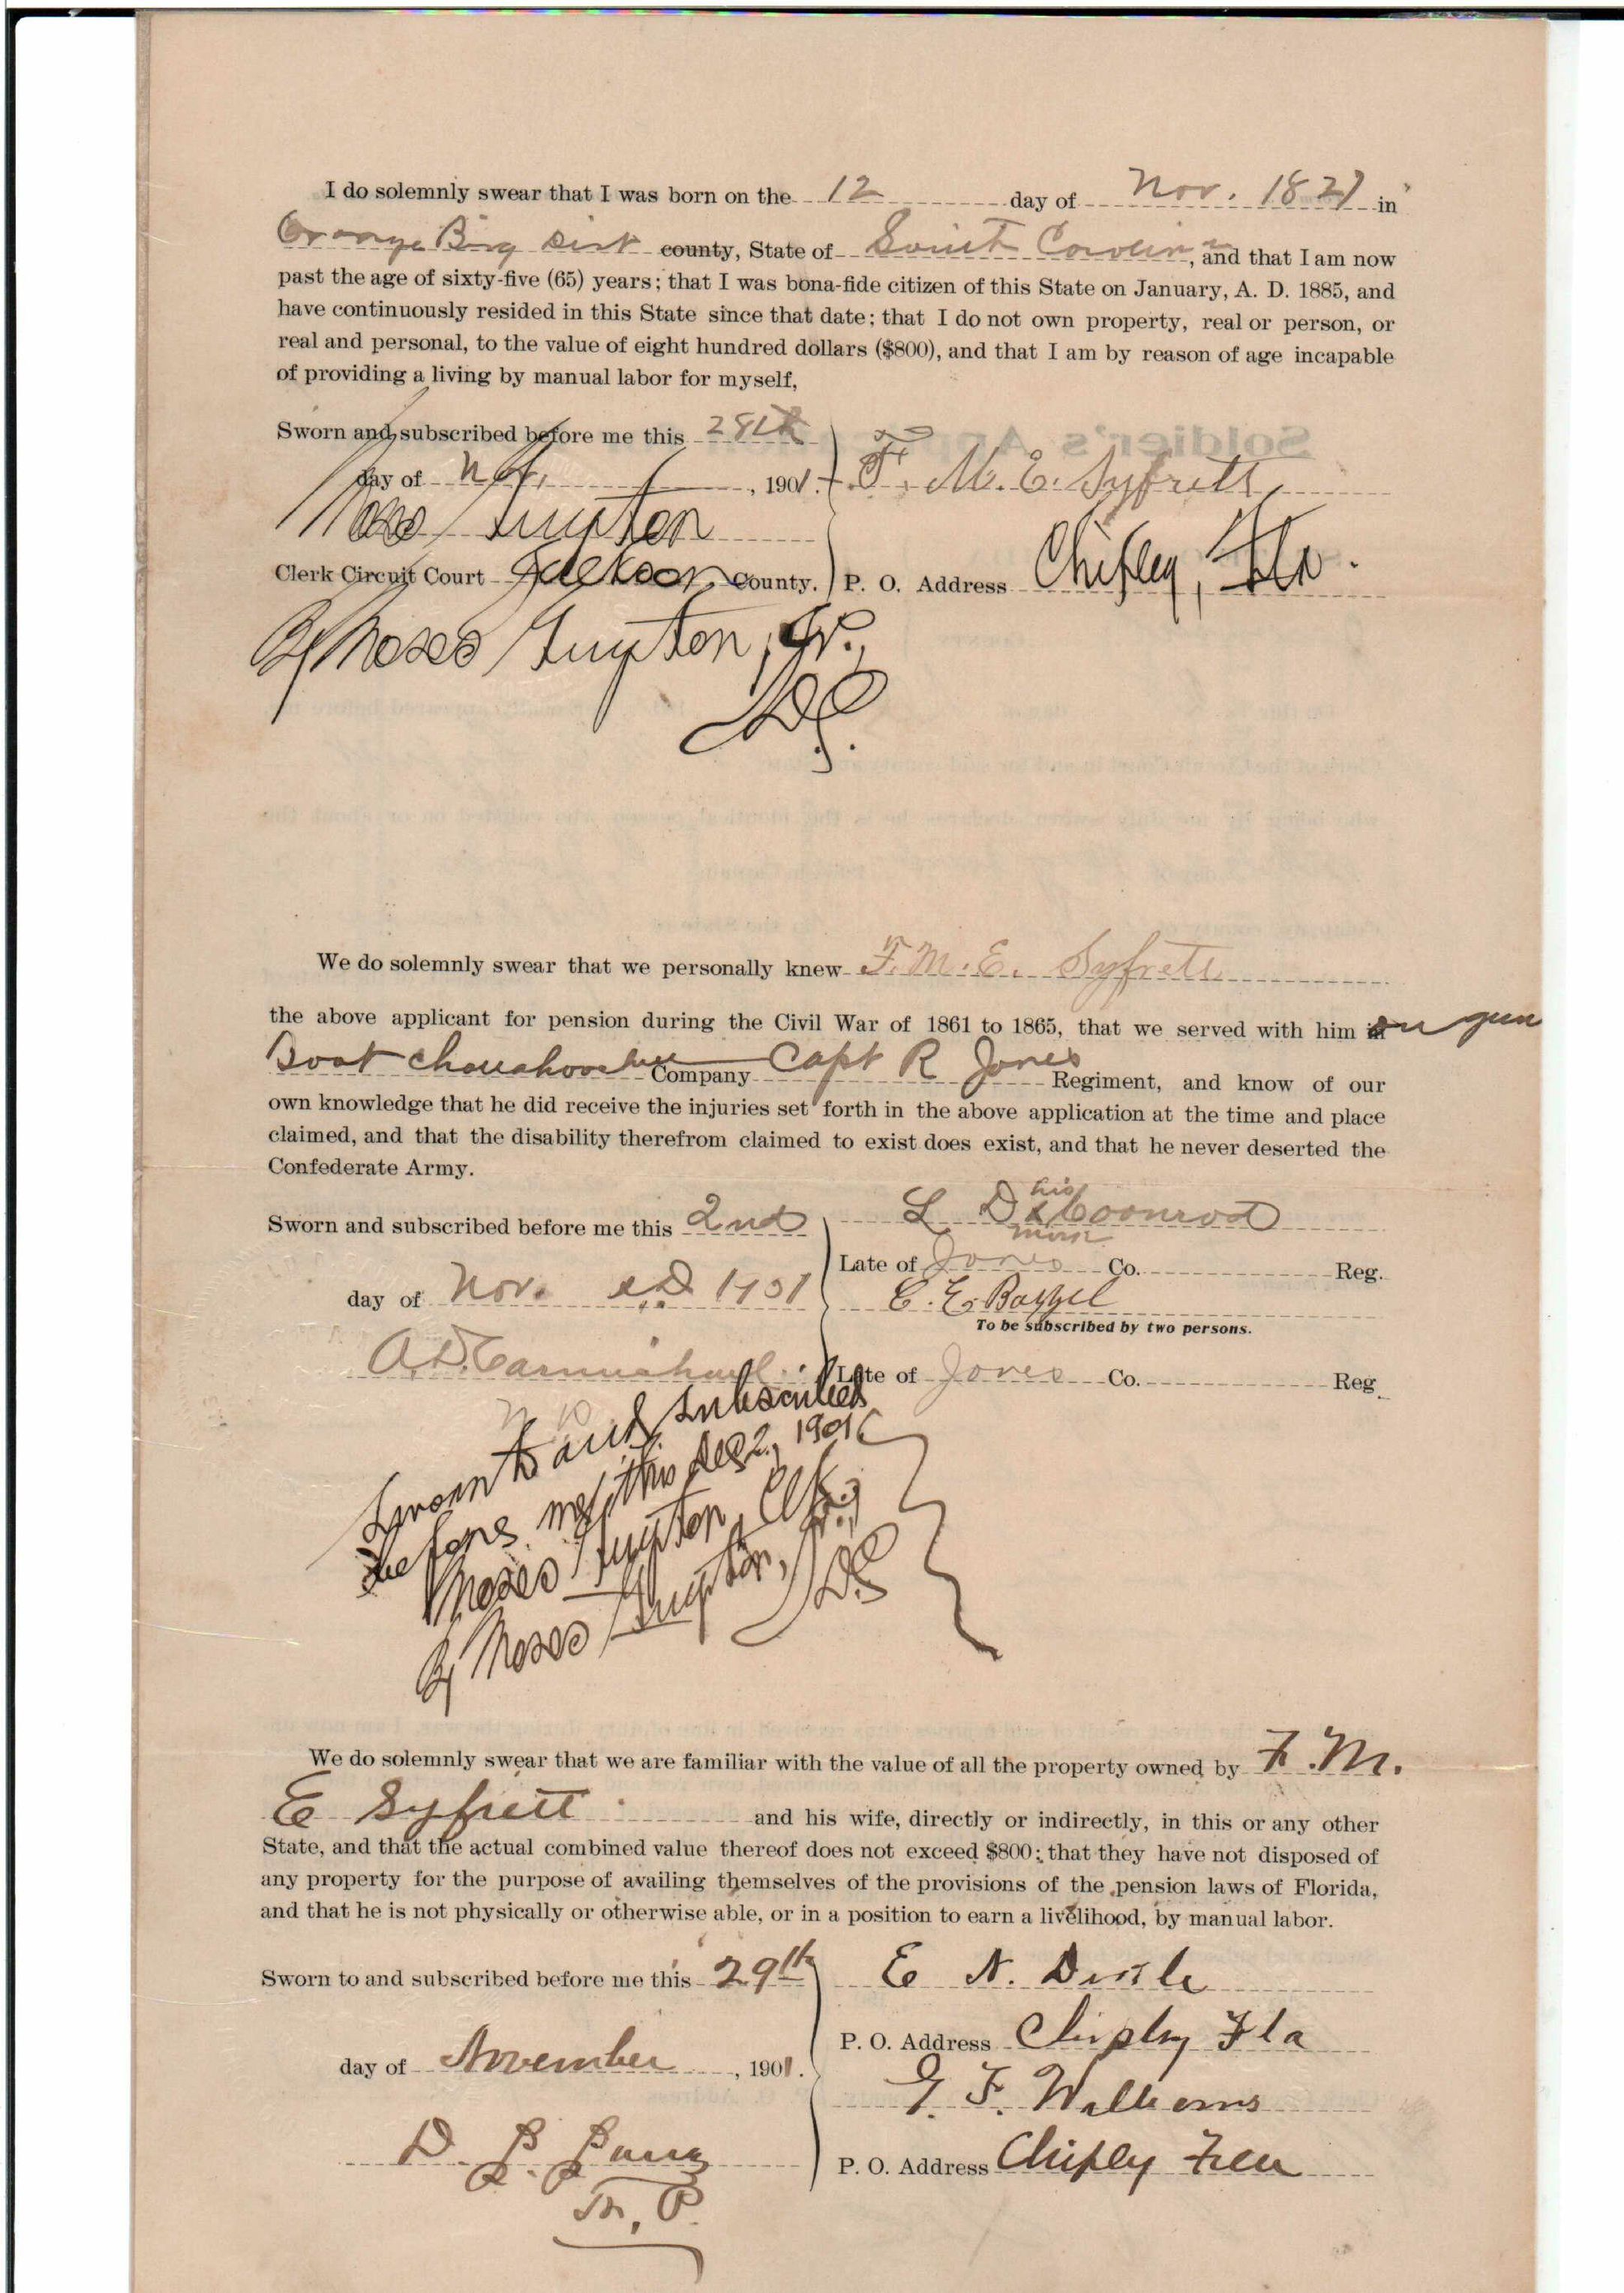 I do solemnly swear that I was born on the 12 day of Nov. 1827 in
Orange Burg Dist county, State of South Carolina, and that I am now
past the age of sixty-five (65) years; that I was bona-fide citizen of this State on January, A. D. 1885, and
have continuously resided in this State since that date; that I do not own property, real or person, or
real and personal, to the value of eight hundred dollars ($800), and that I am by reason of age incapable
of providing a living by manual labor for myself,
Sworn and subscribed before me this 28th
day of Nov., 1901. F. M. E. Syfrett
Moses Guyton
Clerk Circuit Court Jackson County. P. O. Address Chipley, Fla.
By Moses Guyton, Jr.,
D.C.
We do solemnly swear that we personally knew F. M. E. Syfrett
the above applicant for pension during the Civil War of 1861 to 1865, that we served with him on gun
Boat Company Capt R Jones Regiment, and know of our
own knowledge that he did receive the injuries set forth in the above application at the time and place
claimed, and that the disability therefrom claimed to exist does exist, and that he never deserted the
Confederate Army.
Sworn and subscribed before me this 2nd L D his x mark Coonrod
Late of Jones Co. Reg.
day of Nov. A.D. 1901 C. E. Bazzel
To be subscribed by two persons.
A.D. Carmichael Late of Jones Co. Reg.
N P
Sworn to and subscribed
before me, this Dec 2, 1901
Moses Guyton, Clk.,
By Moses Guyton, Jr.,
D.C.
We do solemnly swear that we are familiar with the value of all the property owned by F. M.
E Syfrett and his wife, directly or indirectly, in this or any other
State, and that the actual combined value thereof does not exceed $800; that they have not disposed of
any property for the purpose of availing themselves of the provisions of the pension laws of Florida,
and that he is not physically or otherwise able, or in a position to earn a livelihood, by manual labor.
Sworn to and subscribed before me this 29th E N.
P. O. Address Chipley Fla
day of November, 1901.
G. F. Williams
D. B.
P. O. Address Chipley Fla